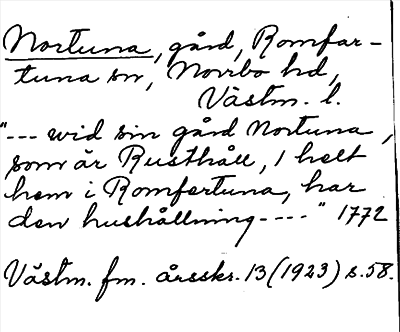 Nortuna, gård, Romfar-
tuna sn, Norrbo hd,
Västm. l.
"--- wid sin gård Nortuna,
som är Rusthåll, 1 helt
hem i Romfertuna, har
den hushållning----" 1772
Västm. fm. årsskr. 13 (1923) s. 58.